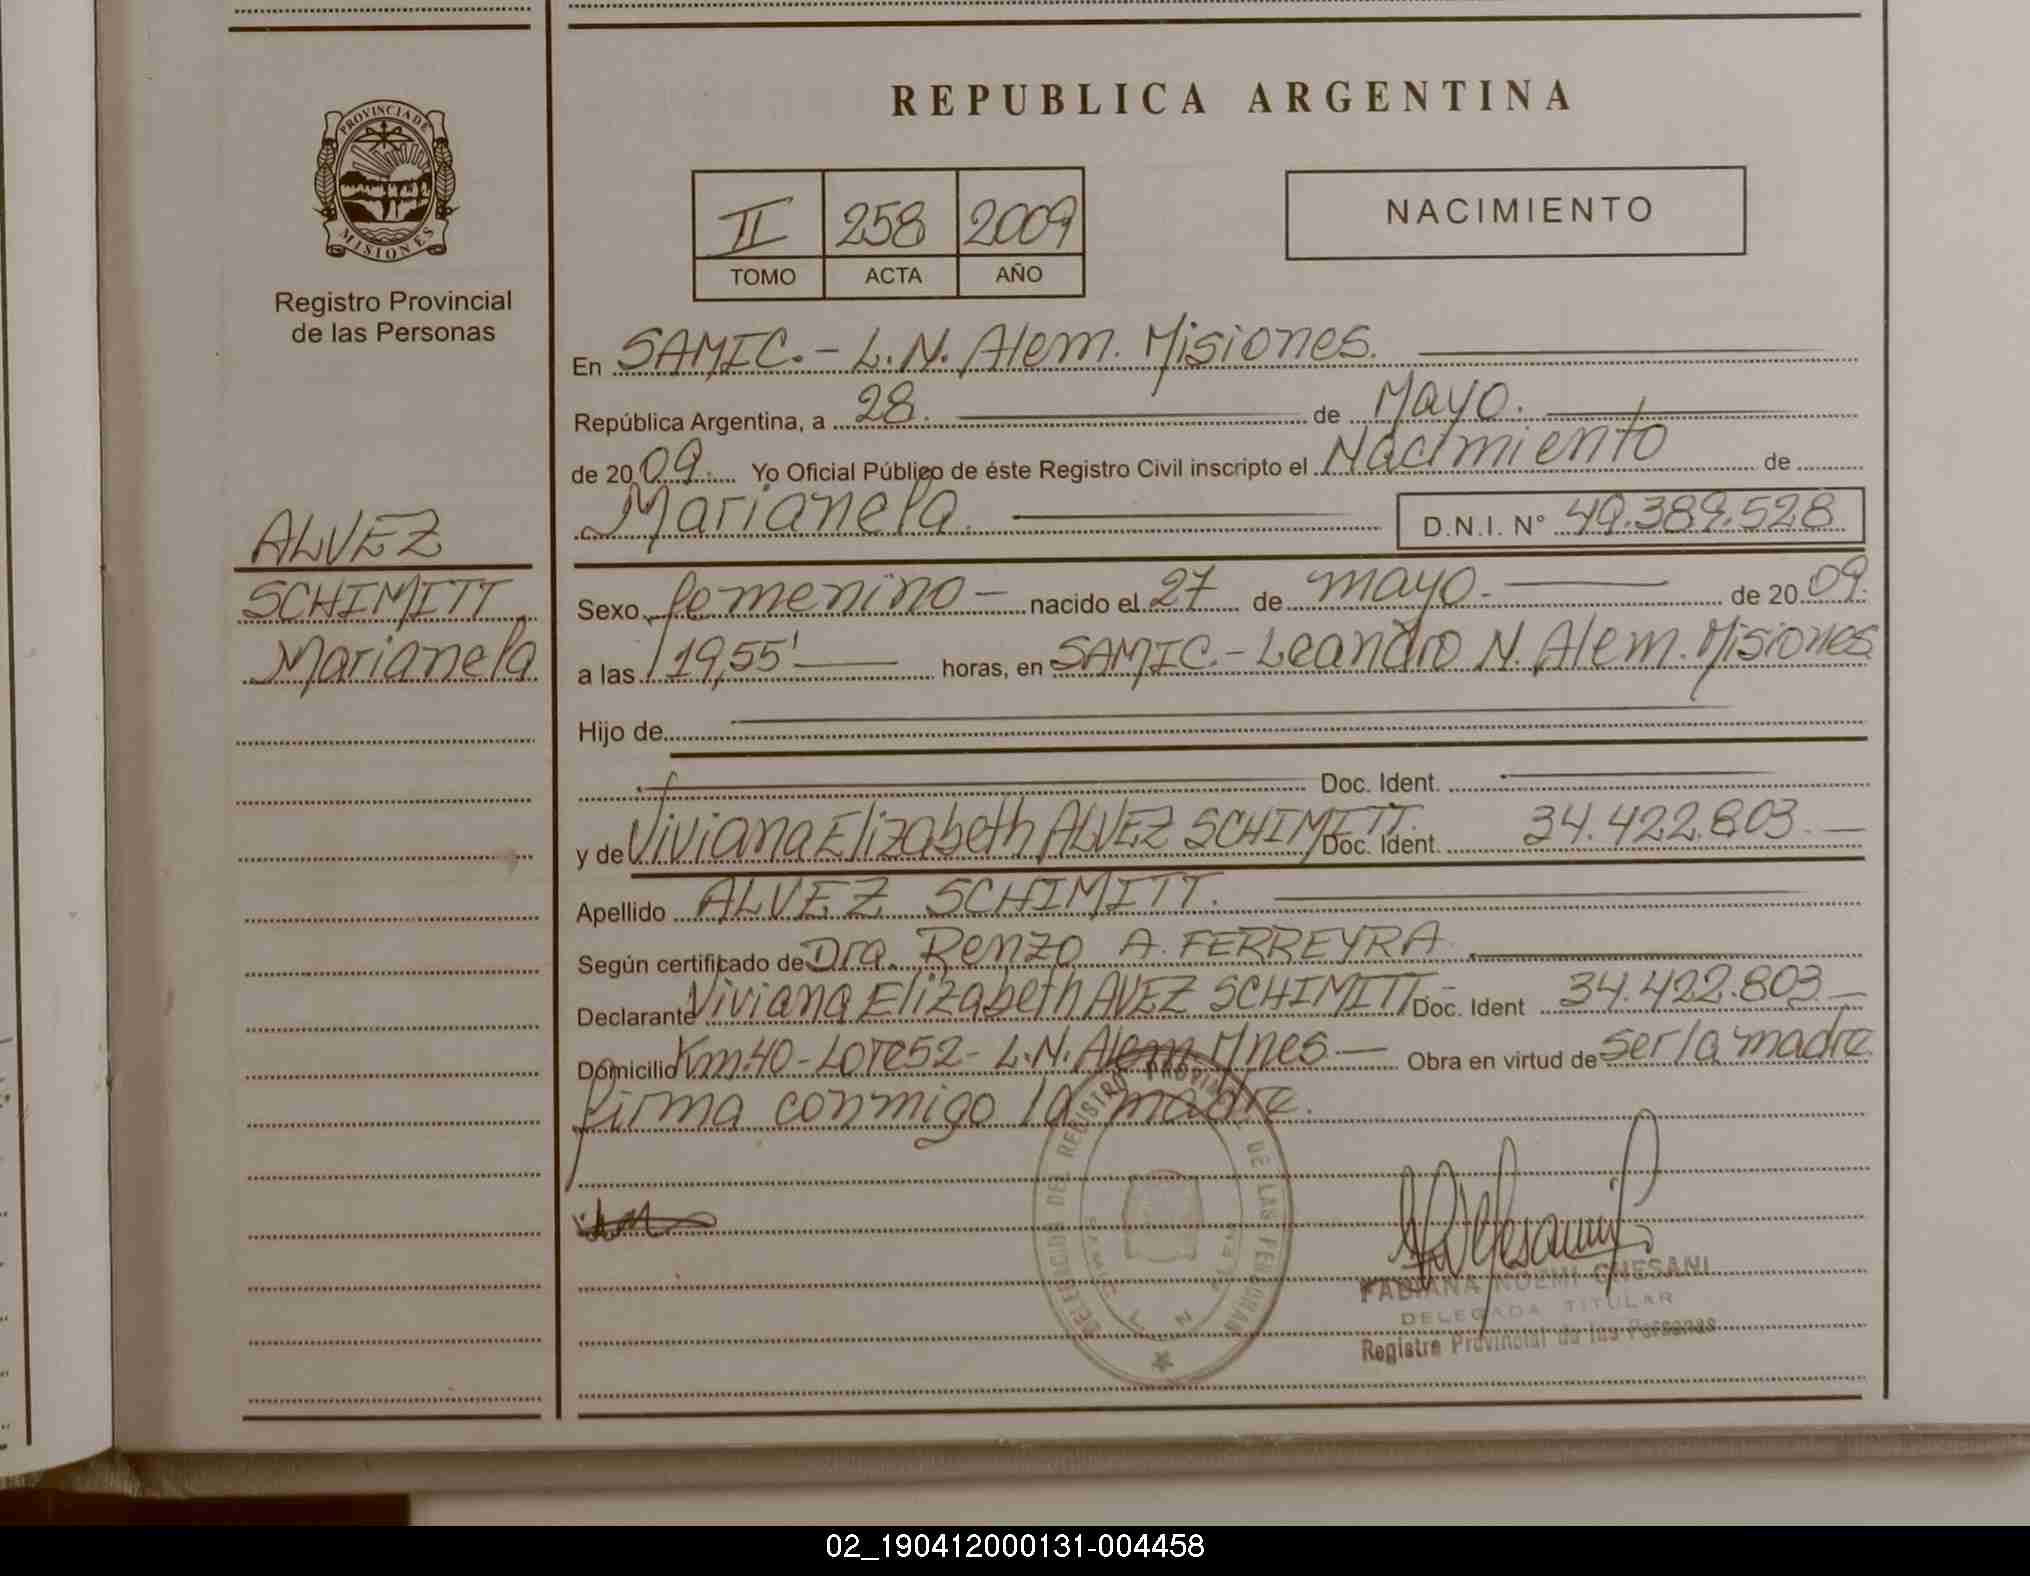 PROVINCIA DE
MISIONES
Registro Provincial
de las Personas
ALVEZ
SCHIMITT
Marianela
REPUBLICA ARGENTINA
II 258 2009
TOMO ACTA AÑO
NACIMIENTO
En SAMIC.- L.N. Alem. Misiones.
República Argentina, a 28. de Mayo.
de 20 09. Yo Oficial Público de éste Registro Civil inscripto el Nacimiento de
Marianela. D.N.I. N° 49.389.528
Sexo femenino - nacido el 27 de mayo. de 20 09.
a las 19,55' horas, en SAMIC.- Leandro N. Alem. Misiones
Hijo de
Doc. Ident.
y de Viviana Elizabeth ALVEZ SCHIMITT. Doc. Ident. 34.422.803.
Apellido ALVEZ SCHIMITT.
Según certificado de Dra. Renzo A. FERREYRA
Declarante Viviana Elizabeth AVEZ SCHIMITT- Doc. Ident 34.422.803
Domicilio Km.40 - LOTE 52 - L.N. Alem Mnes. Obra en virtud de ser la madre
firma conmigo la madre.
DELEGACION DEL REGISTRO PROVINCIAL DE LAS PERSONAS
SAMIC
FABIANA NOEMI CHESANI
DELEGADA TITULAR
Registro Provincial de las Personas
02_190412000131-004458